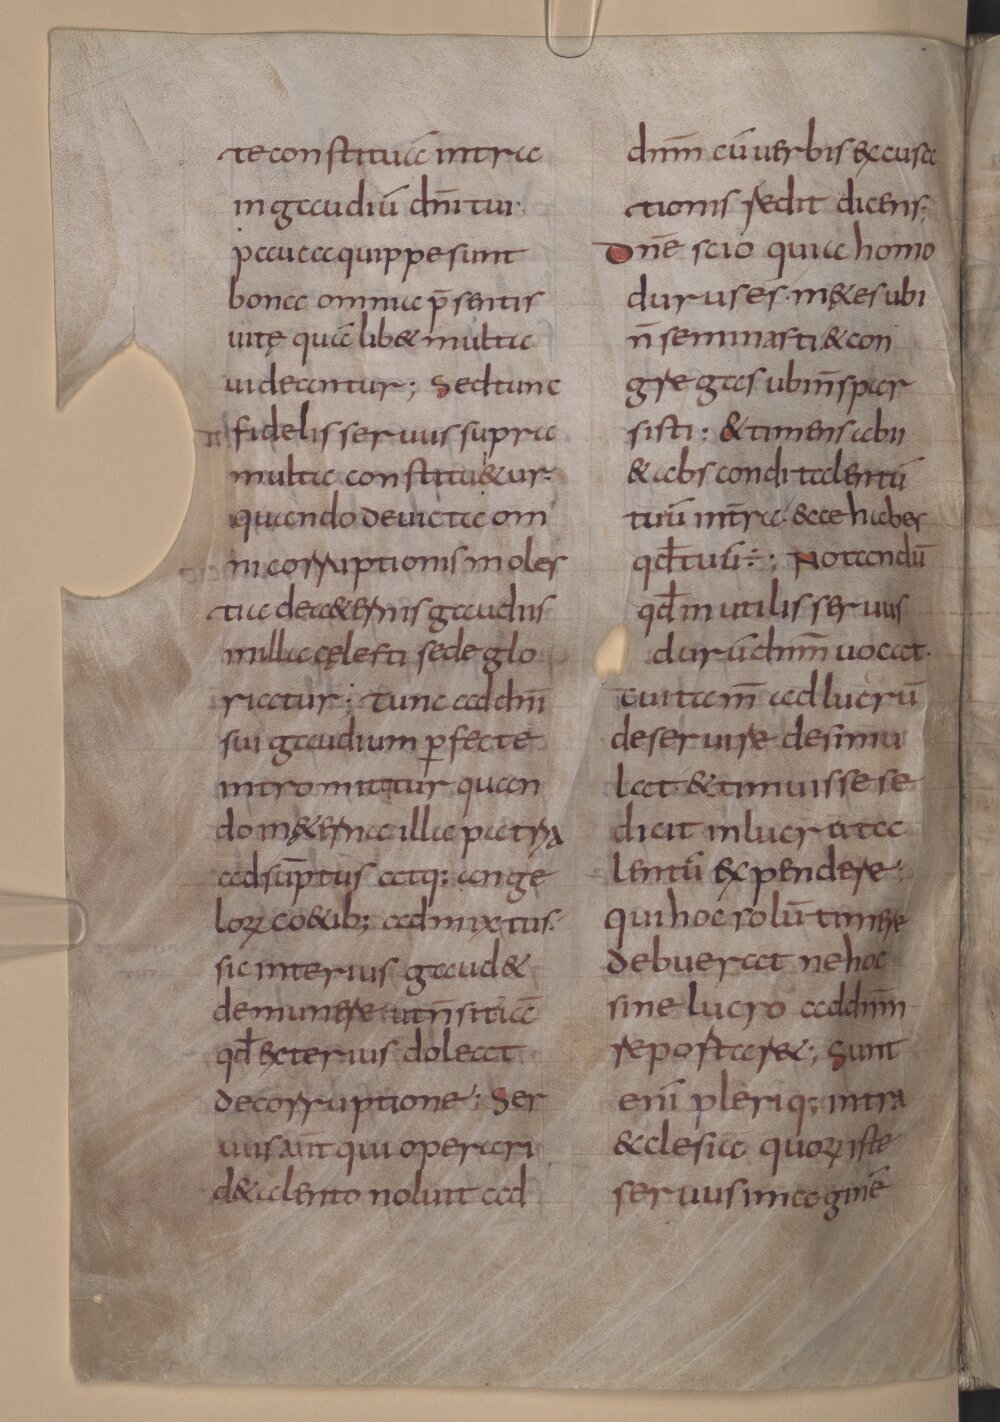 te constituā intra
in gaudiū dn̄i tui·
pauca quippe sunt
bona omnia p̄sentis
uitę quā lib& multa
uideantur; Sed tunc
fidelis seruus supra
multa constitu&ur·
quando deuicta om
ni corruptionis moles
tia de a&ernis gaudiis
in illa cęlesti sede glo
riatur; tunc ad dn̄i
sui gaudium perfecte
intromittitur quan
do in &erna illa patria
adsūptus atq; ange
lorꝝ co&ib; admixtus·
sic interius gaud&
de munere ut n̄ sit iā
qd̄ exterius doleat
de corruptione; Ser
uus aūt qui operari
d& alento noluit ad
dn̄m cū uerbis excusa
tionis redit dicens;
Dn̄e scio quia homo
durus es· m&es ubi
n̄ seminasti & con
gregas ubi n̄ spar
sisti; & timens abii
& abscondi talentū
tuū in t̄ra· & ecce habes
qd̄ tuū ē; Notandū
qd̄ inutilis seruus
durū dn̄m uocat·
cui tam̄ ad lucrū
deseruire desimu
lat & timuisse se
dicit in lucra ta
lentū expendere;
qui hoc solū timere
debuerat ne hoc
sine lucro ad dn̄m
reportar&; Sunt
enī pleriq; intra
&clesia quorꝝ iste
seruus imaginē